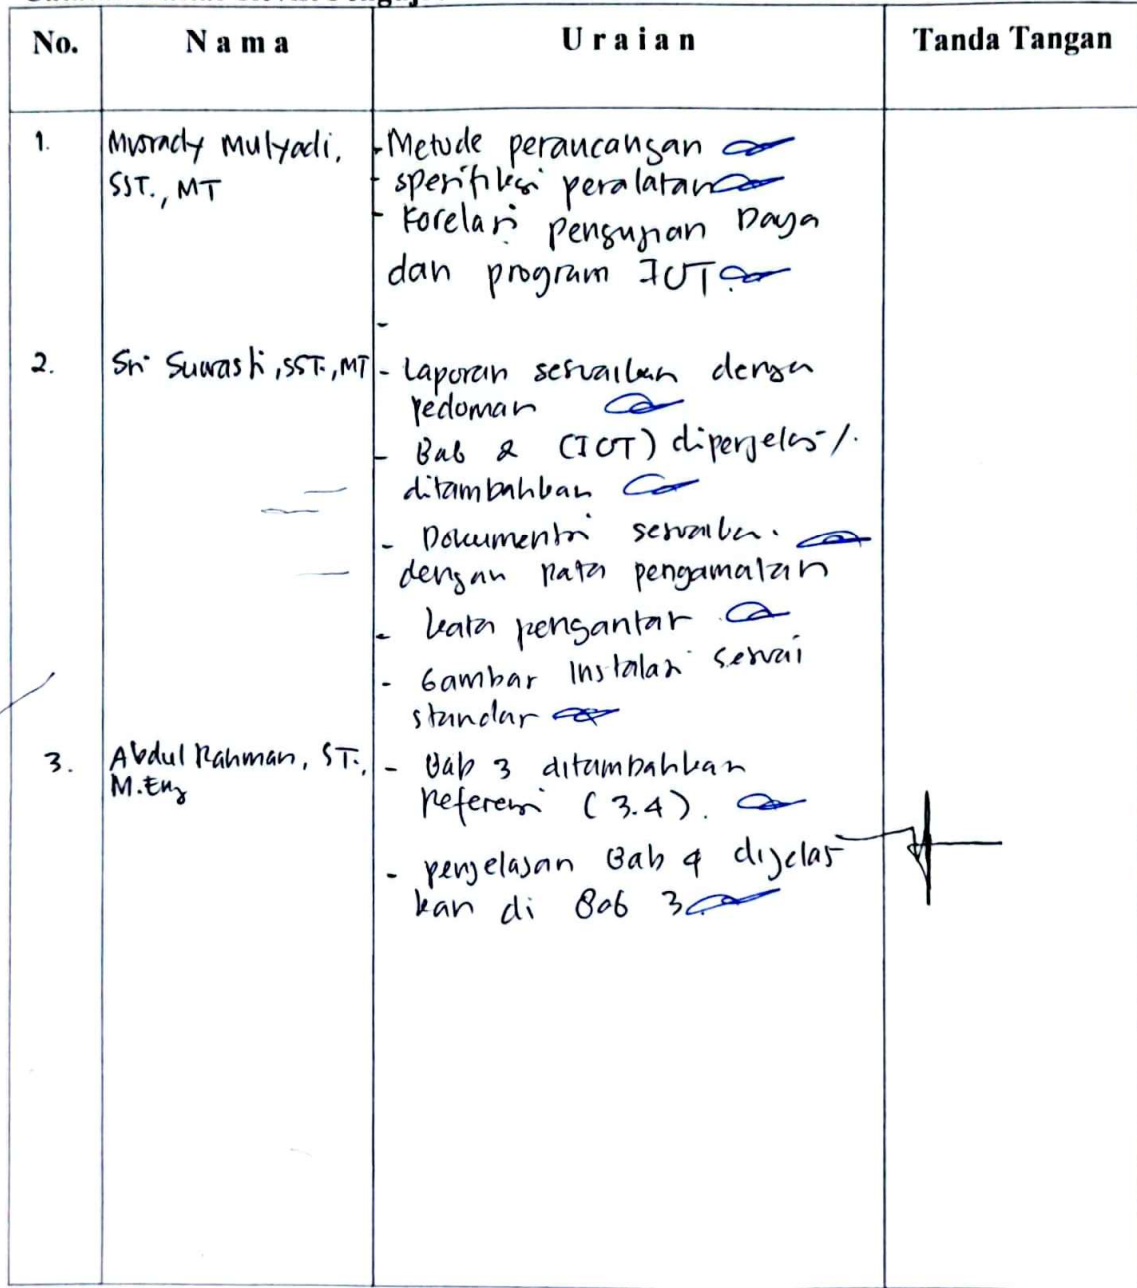 No. N a m a U r a i a n Tanda Tangan
1. Musrady Mulyadi, - Metode perancangan
SST., MT - spesifikasi peralatan
- Korelasi pengujian Daya
dan program IOT.
-
2. Sri Suwasti, SST., MT - Laporan sesuaikan dengan
pedoman
- Bab 2 (IOT) diperjelas /
ditambahkan
- Dokumentasi sesuaikan
dengan Data pengamatan
- kata pengantar
- Gambar Instalasi sesuai
standar
3. Abdul Rahman, ST., - Bab 3 ditambahkan
M.Eng Referensi (3.4).
- penjelasan Bab 4 dijelas
kan di Bab 3